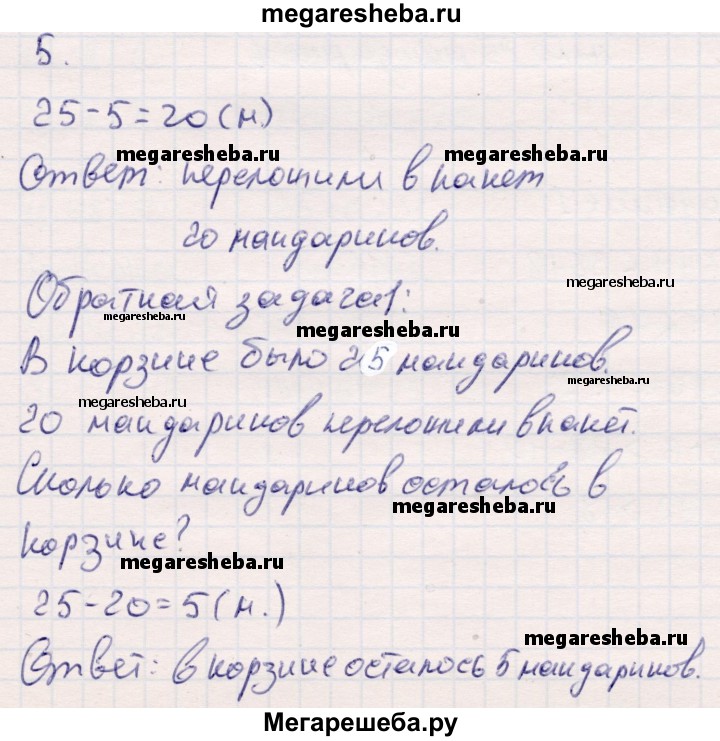 megaresheba.ru
5.
25-5=20 (м)
megaresheba.ru megaresheba.ru
Ответ: переложили в пакет
20 мандаринов.
megaresheba.ru
Обратная задача 1:
megaresheba.ru megaresheba.ru
В корзине было 25 мандаринов.
megaresheba.ru
megaresheba.ru
20 мандаринов переложили в пакет.
Сколько мандаринов осталось в
megaresheba.ru
корзине?
megaresheba.ru
25-20=5 (м.)
megaresheba.ru
Ответ: в корзине осталось 5 мандаринов.
Мегарешеба.ру